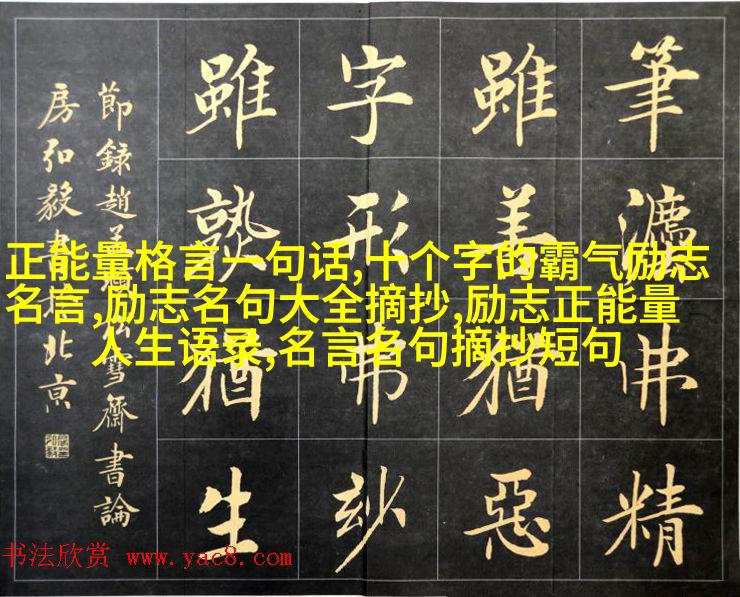 筆灋佛精
雖善猶惡
字形弗妙
雖熟猶生
節錄趙孟頫松雪齋書論
房弘毅書於北京
正能量格言一句话,十个字的霸气励志
名言,励志名句大全摘抄,励志正能量
人生语录,名言名句摘抄短句
书法欣赏 www.yac8.com